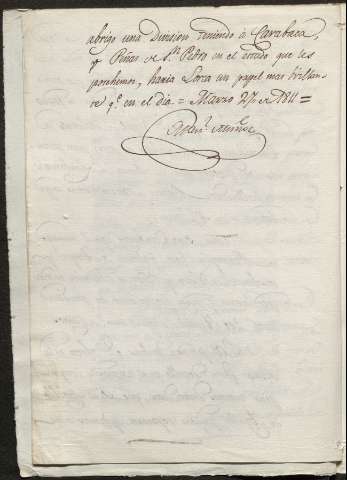 abrigo una Division teniendo à Carabaca,
y Peñas de Sn. Pedro en el estado que les
ponehemos, haria Lorca un papel mas brillan-
te qe. en el dia = Marzo 27 de 1811 =